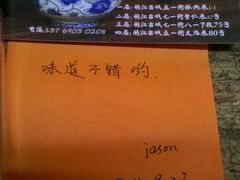 一店:丽江古城五一街振兴巷1-1
二店:丽江古城七一街崇仁巷20号
三店:丽江古城七一街八一下段75号
电话:13769030208
四店:丽江古城五一街文治巷80号
味道不错哟.
jason